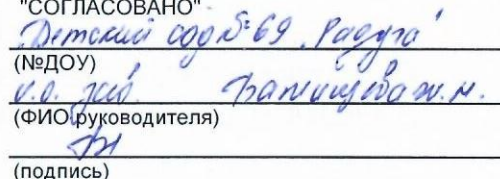 "СОГЛАСОВАНО"
Детский сад № 69 "Радуга"
(№ДОУ)
и.о. зав.
(ФИО руководителя)
(подпись)